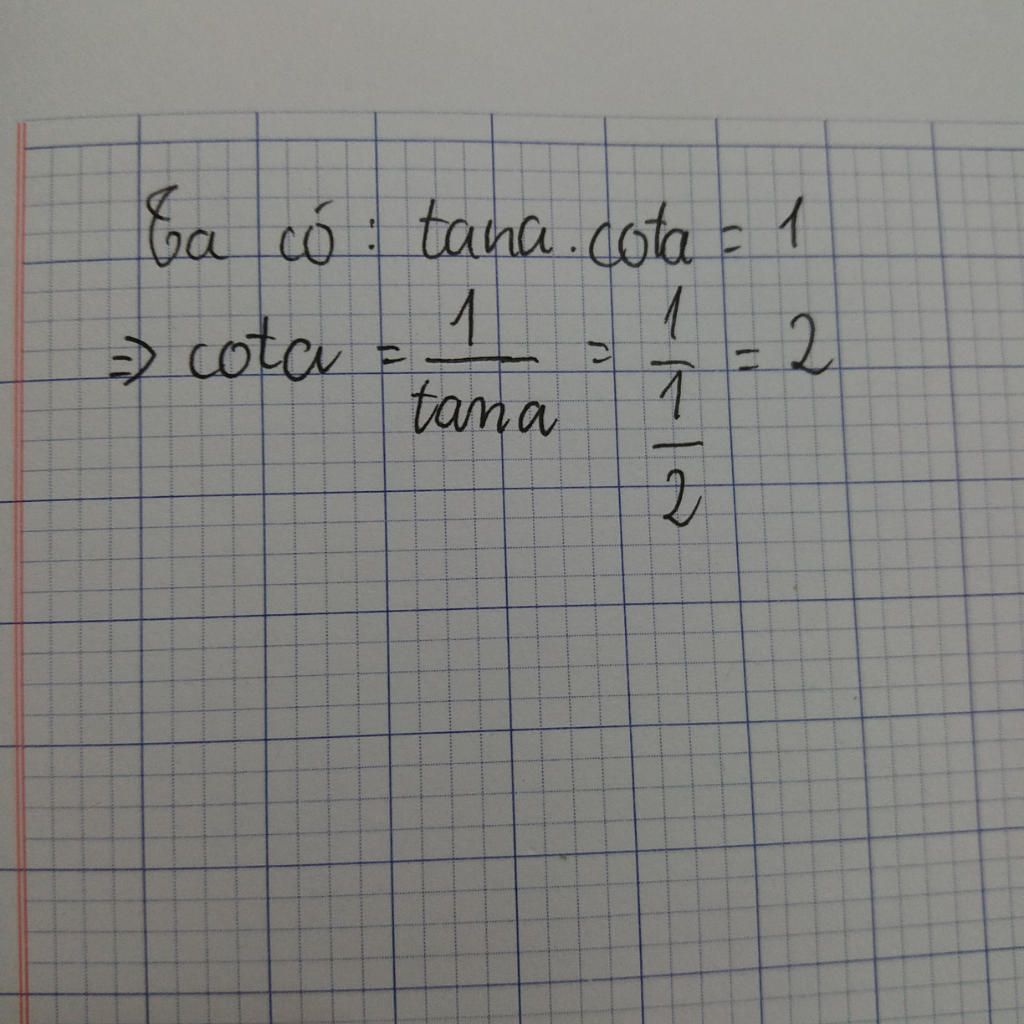 Ta có : tana . cota = 1
=> cota = 1/tana = 1/(1/2) = 2